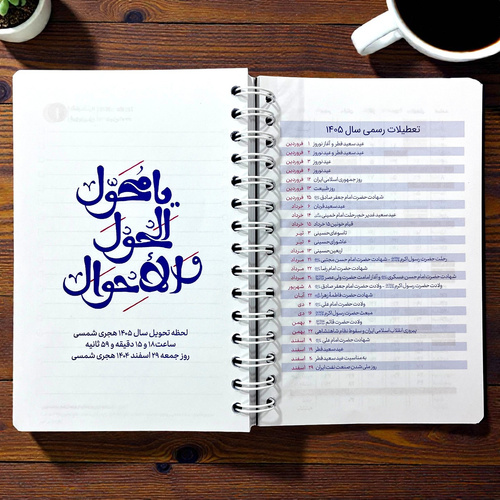 یا محوّل
الحول
والأحوال
لحظه تحویل سال ۱۴۰۵ هجری شمسی
ساعت ۱۸ و ۱۵ دقیقه و ۵۹ ثانیه
روز جمعه ۲۹ اسفند ۱۴۰۴ هجری شمسی
تعطیلات رسمی سال ۱۴۰۵
۱ فروردین عید سعید فطر و آغاز نوروز
۲ فروردین عید سعید فطر و عید نوروز
۳ فروردین عید نوروز
۴ فروردین عید نوروز
۱۲ فروردین روز جمهوری اسلامی ایران
۱۳ فروردین روز طبیعت
فروردین شهادت حضرت امام جعفر صادق
۶ خرداد عید سعید قربان
۱۴ خرداد عید سعید غدیر خم، رحلت امام خمینی
۱۵ خرداد قیام خونین ۱۵ خرداد
۳ تیر تاسوعای حسینی
۴ تیر عاشورای حسینی
۱۳ مرداد اربعین حسینی
۲۱ مرداد رحلت حضرت رسول اکرم، شهادت حضرت امام حسن مجتبی
مرداد شهادت حضرت امام رضا
مرداد شهادت حضرت امام حسن عسکری و آغاز امامت حضرت ولی عصر
۸ شهریور ولادت حضرت رسول اکرم - ولادت حضرت امام جعفر صادق
آبان شهادت حضرت فاطمه زهرا
۲ دی ولادت حضرت امام علی
دی مبعث حضرت رسول اکرم
۴ بهمن ولادت حضرت قائم
۲۲ بهمن پیروزی انقلاب اسلامی ایران و سقوط نظام شاهنشاهی
۹ اسفند شهادت حضرت امام علی
۱۹ اسفند عید سعید فطر
۲۰ اسفند به مناسبت عید سعید فطر
۲۹ اسفند روز ملی شدن صنعت نفت ایران